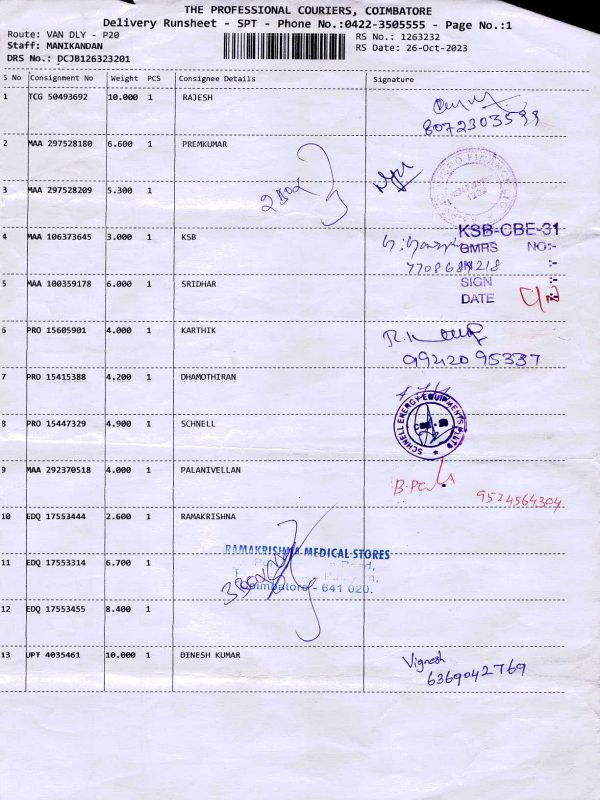 THE PROFESSIONAL COURIERS, COIMBATORE
Delivery Runsheet - SPT - Phone No.:0422-3505555 - Page No.:1
Route: VAN DLY - P20
RS No.: 1263232
Staff: MANIKANDAN
RS Date: 26-Oct-2023
DRS No.: DCJB126323201
S No Consignment No Weight PCS Consignee Details Signature
1 TCG 50493692 10.000 1 RAJESH
8072303599
2 MAA 297528180 6.600 1 PREMKUMAR
3 MAA 297528209 5.300 1
4 MAA 106373645 3.000 1 KSB
KSB-CBE-31
GMRS NO:-
SIGN :-
DATE :-
5 MAA 100359178 6.000 1 SRIDHAR
6 PRO 15605901 4.000 1 KARTHIK
99420 95337
7 PRO 15415388 4.200 1 DHAMOTHIRAN
8 PRO 15447329 4.900 1 SCHNELL
SCHNELL ENERGY EQUIPMENTS P LTD
9 MAA 292370518 4.000 1 PALANIVELLAN
9524564304
10 EDQ 17553444 2.600 1 RAMAKRISHNA
RAMAKRISHNA MEDICAL STORES
Coimbatore - 641 020.
11 EDQ 17553314 6.700 1
12 EDQ 17553455 8.400 1
13 UPT 4035461 10.000 1 DINESH KUMAR
Vignesh
6369042769